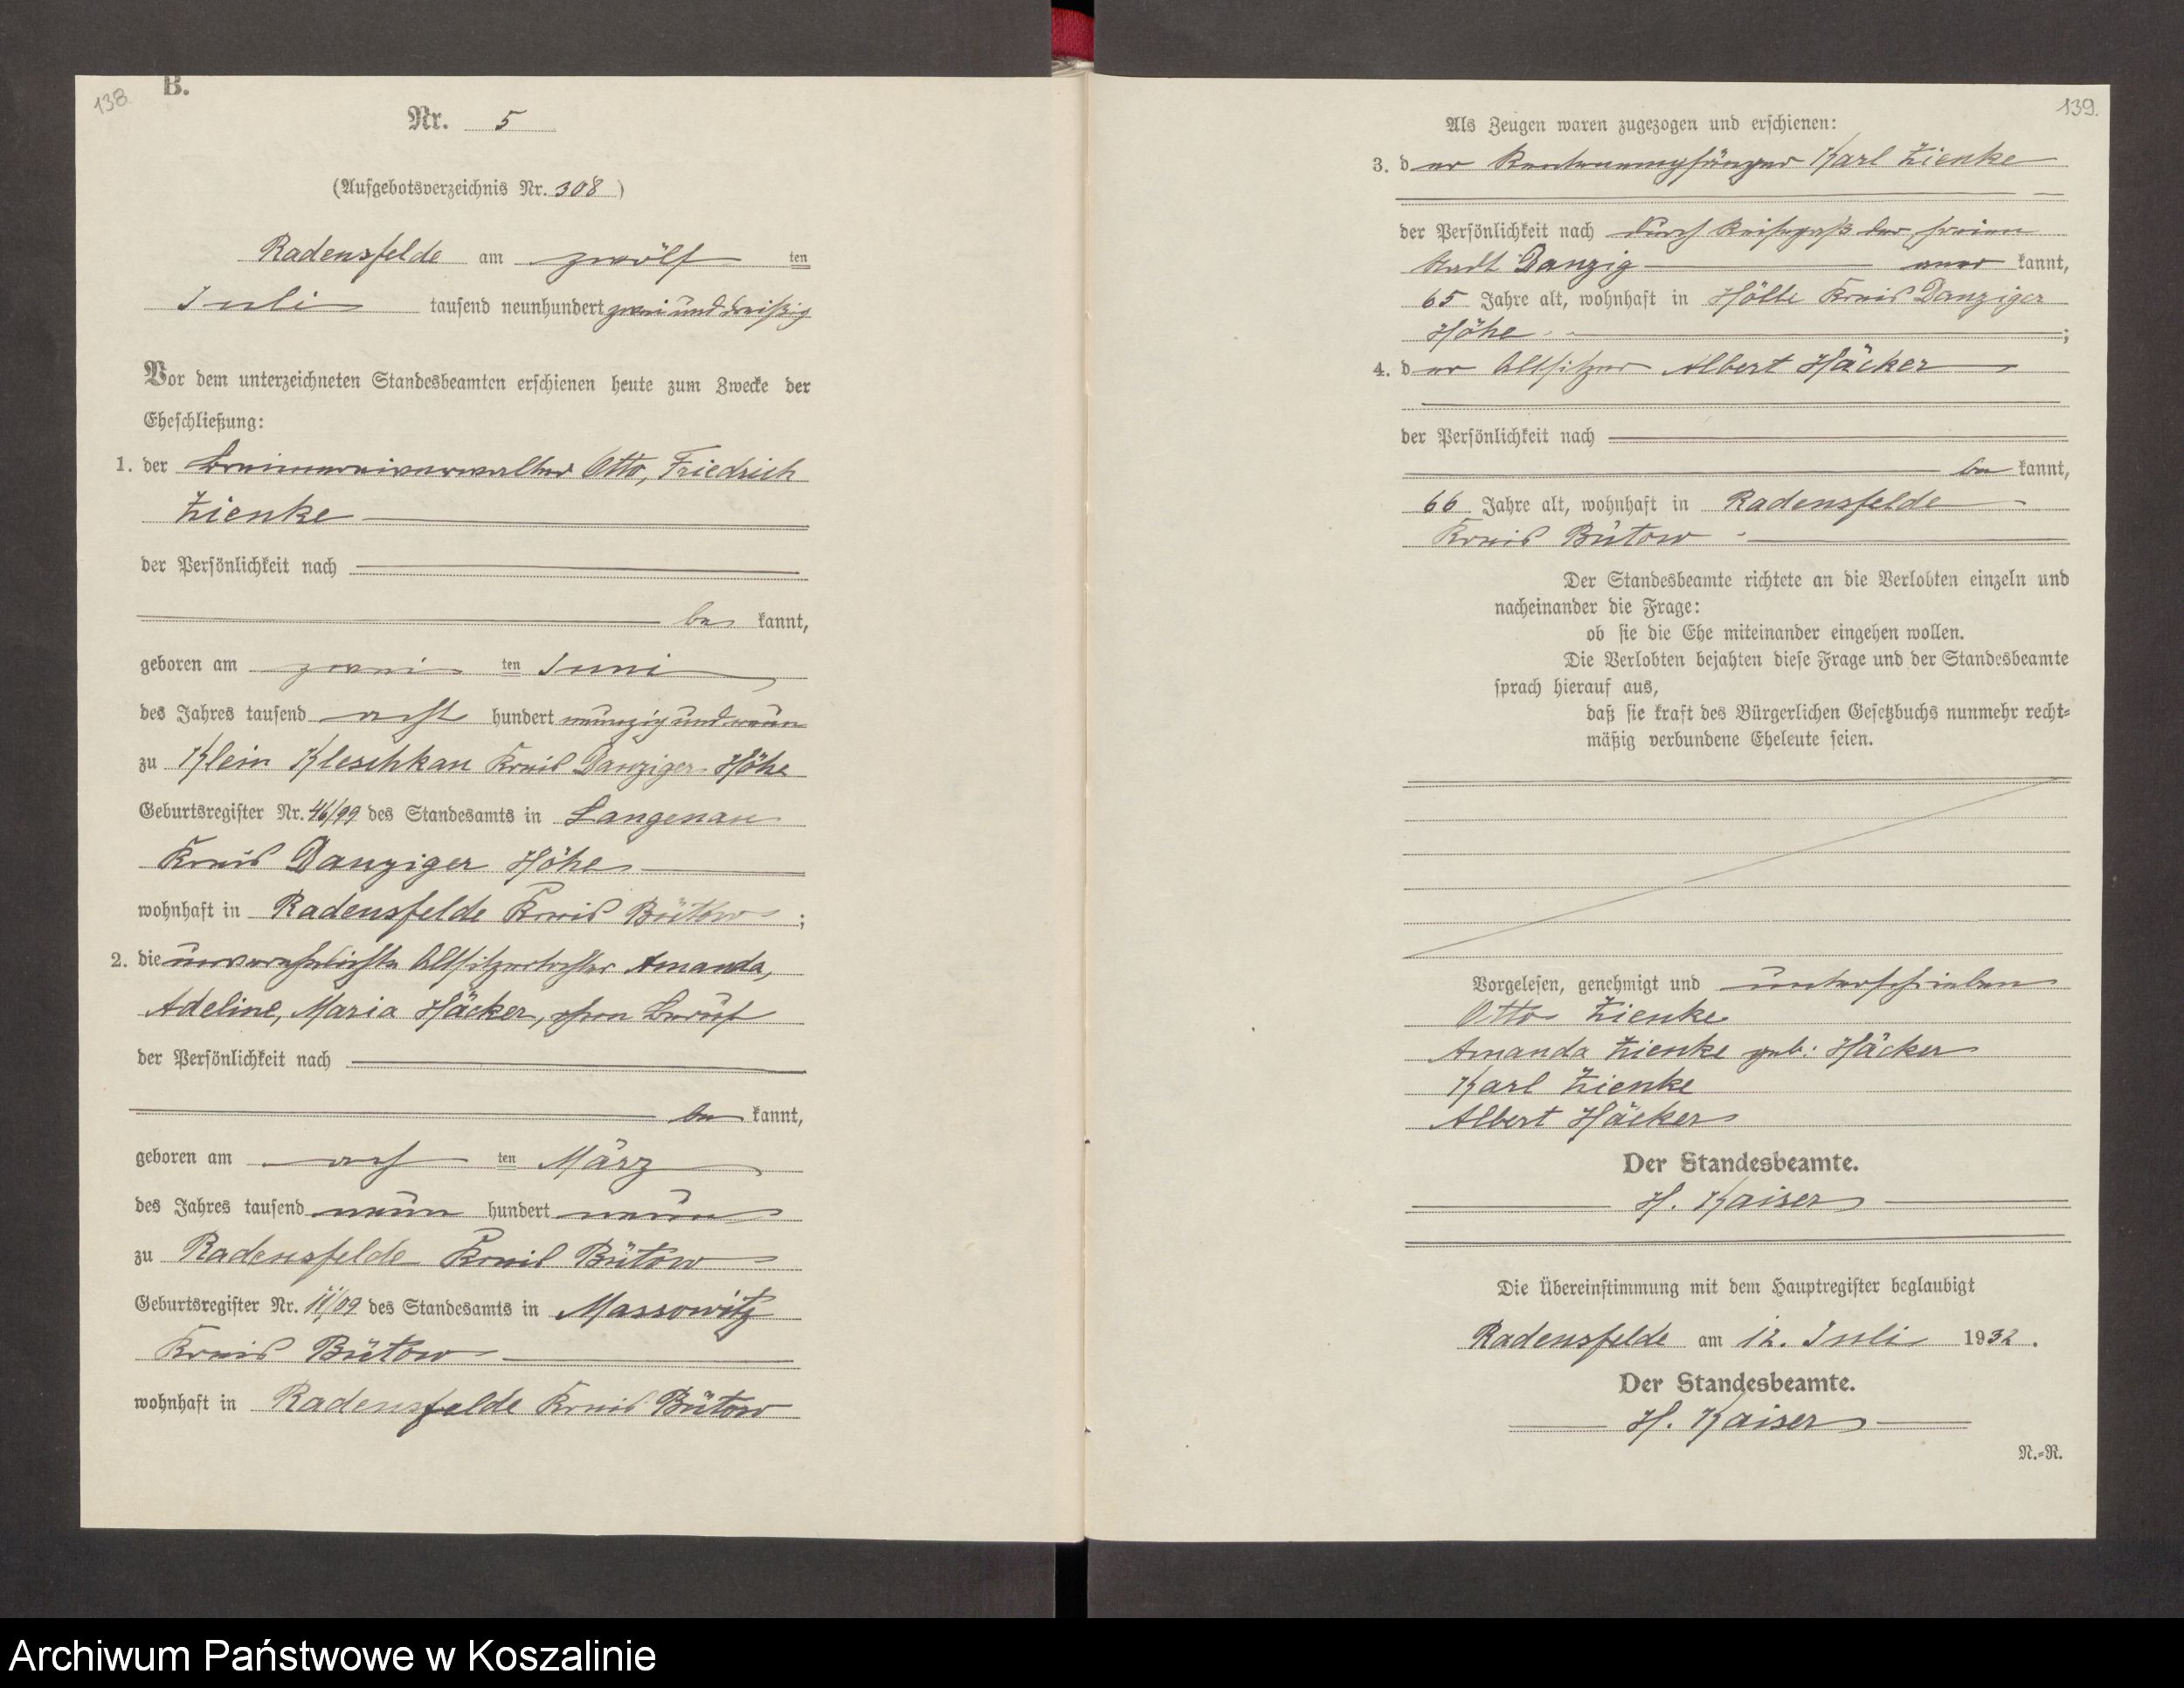 138
B.
Nr. 5
(Aufgebotsverzeichnis Nr. 308)
Radensfelde am zwölf ten
Juli tausend neunhundert zwei und dreißig
Vor dem unterzeichneten Standesbeamten erschienen heute zum Zwecke der
Eheschließung:
1. der Brennereiverwalter Otto, Friedrich
Zienke
der Persönlichkeit nach
be kannt,
geboren am zwei ten Juni
des Jahres tausend acht hundert neunzig und neun
zu Klein Kleschkau Kreis Danziger Höhe
Geburtsregister Nr. 46/99 des Standesamts in Langenau
Kreis Danziger Höhe
wohnhaft in Radensfelde Kreis Bütow;
2. die unverehelichte Altsitzertochter Amanda,
Adeline, Maria Häcker, ohne Beruf
der Persönlichkeit nach
be kannt,
geboren am acht ten März
des Jahres tausend neun hundert neun
zu Radensfelde Kreis Bütow
Geburtsregister Nr. 11/09 des Standesamts in Massowitz
Kreis Bütow
wohnhaft in Radensfelde Kreis Bütow
139.
Als Zeugen waren zugezogen und erschienen:
3. d er Rentenempfänger Karl Zienke
der Persönlichkeit nach durch Reisepaß der freien
Stadt Danzig aner kannt,
65 Jahre alt, wohnhaft in Hölle Kreis Danziger
Höhe;
4. d er Altsitzer Albert Häcker
der Persönlichkeit nach
be kannt,
66 Jahre alt, wohnhaft in Radensfelde
Kreis Bütow
Der Standesbeamte richtete an die Verlobten einzeln und
nacheinander die Frage:
ob sie die Ehe miteinander eingehen wollen.
Die Verlobten bejahten diese Frage und der Standesbeamte
sprach hierauf aus,
daß sie kraft des Bürgerlichen Gesetzbuchs nunmehr recht=
mäßig verbundene Eheleute seien.
Vorgelesen, genehmigt und unterschrieben
Otto Zienke
Amanda Zienke geb. Häcker
Karl Zienke
Albert Häcker
Der Standesbeamte.
H. Kaiser
Die Übereinstimmung mit dem Hauptregister beglaubigt
Radensfelde am 12. Juli 1932.
Der Standesbeamte.
H. Kaiser
N.=R.
Archiwum Państwowe w Koszalinie